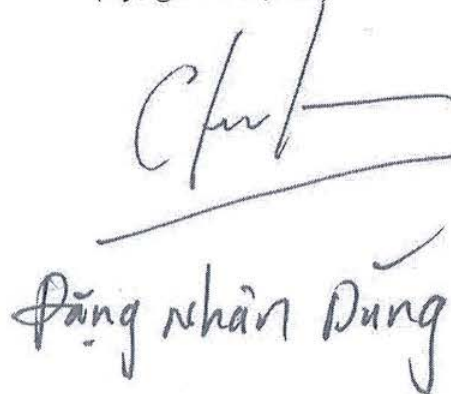 Đặng Nhân Dũng